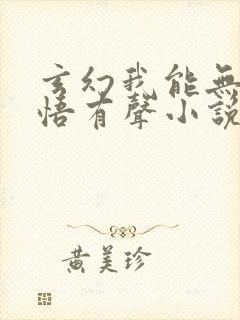 玄幻我能無
悟有聲小說
黄美珍